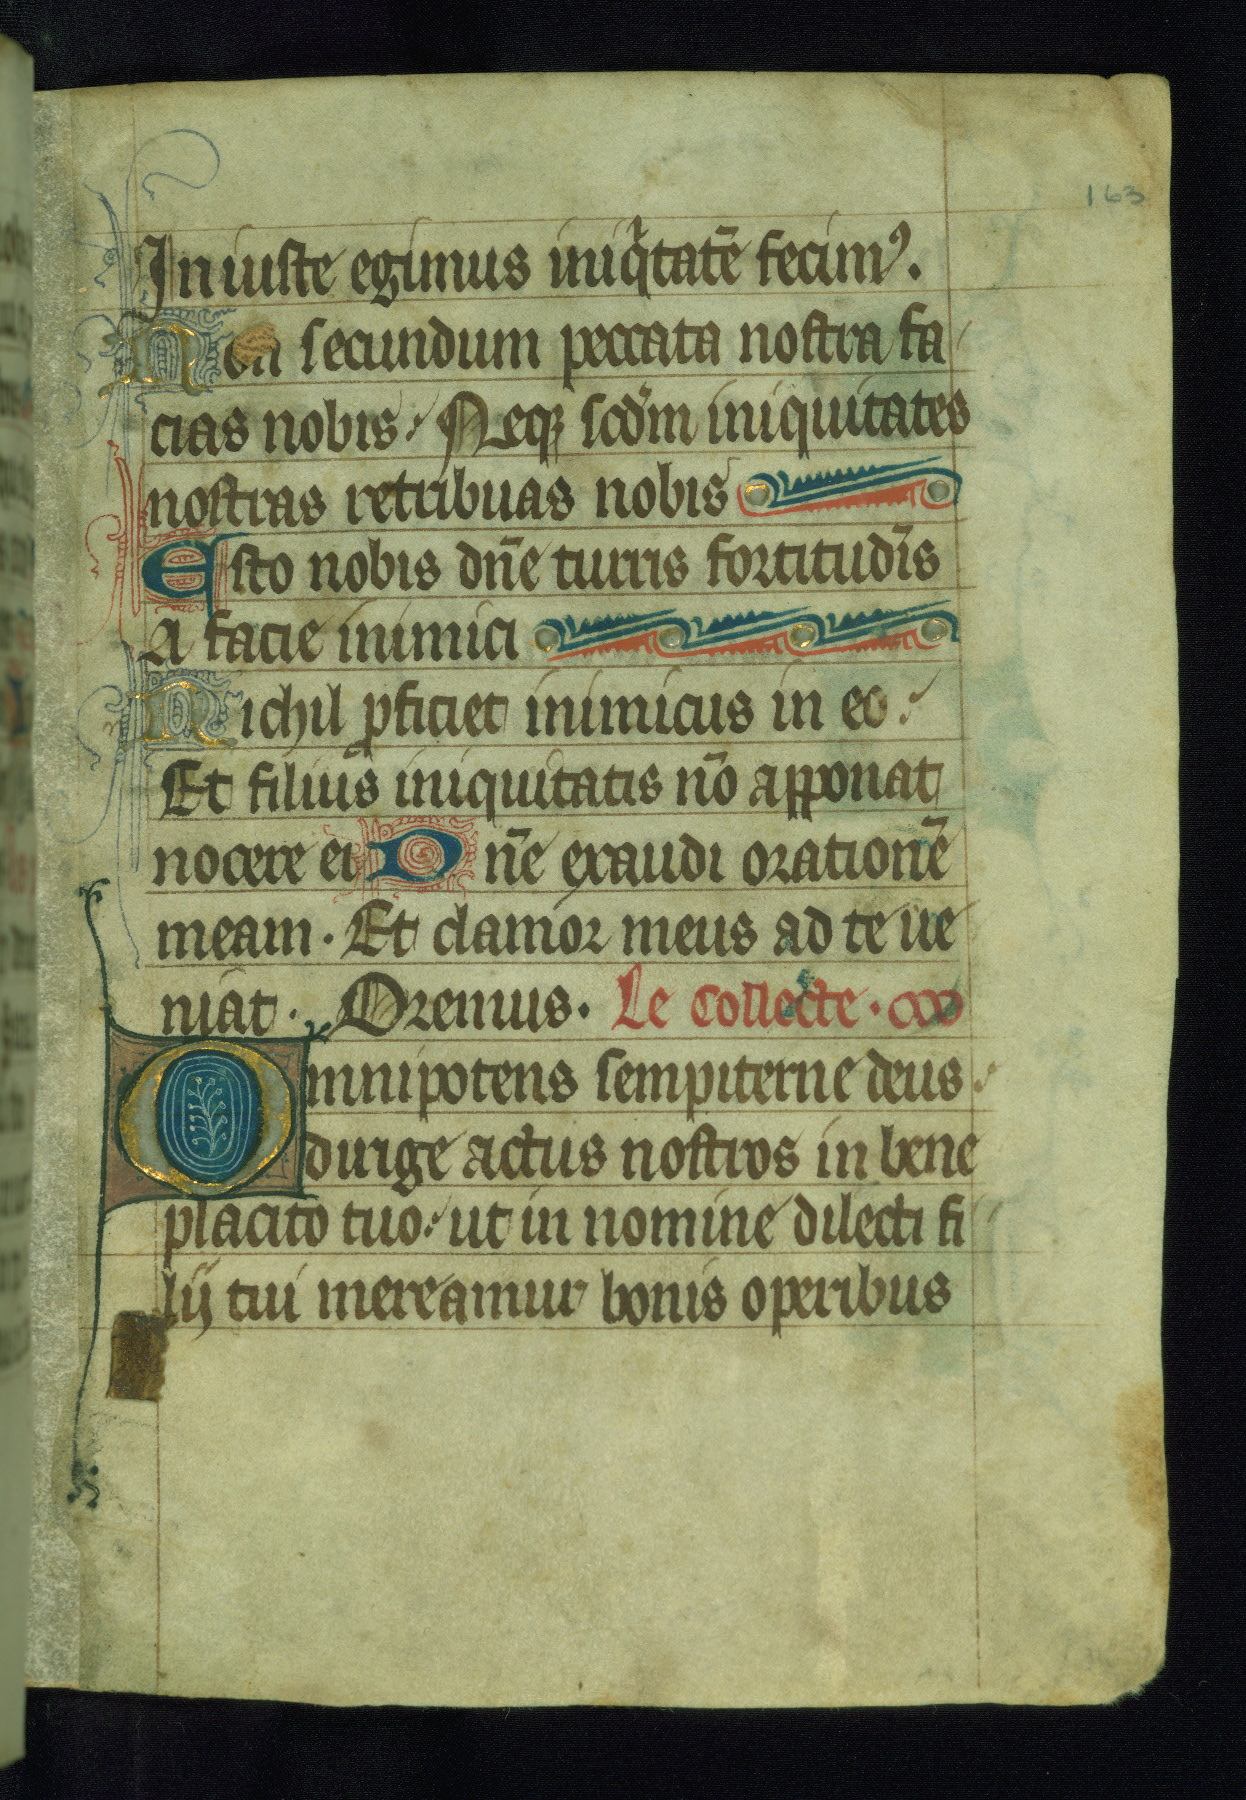 163
In iuste egimus iniqͥtatē fecimꝰ.
Non secundum peccata nostra fa
cias nobis: Neqꝫ scdm̄ iniquitates
nostras retribuas nobis
Esto nobis dn̄e turris fortitudīs
A facie inimici
Nichil ꝓficiet inimicus in eo:
Et filius iniquitatis nō apponat
nocere ei Dn̄e exaudi orationē
meam. Et clamor meus ad te ue
niat. Oremus. Le collecte.
Omnipotens sempiterne deus:
dirige actus nostros in bene
placito tuo: ut in nomine dilecti fi
lij tui mereamur bonis operibus